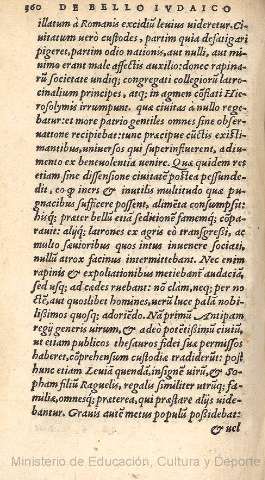 360 DE BELLO IVDAICO
illatum à Romanis excidiũ leuius uideretur. Ci-
uitatum uerò custodes, partim quia defatigari
pigeret, partim odio nationis, aut nulli, aut mi-
nimo erant male affectis auxilio: donec rapina-
rũ societate undiq; congregati collegiorũ latro-
cinalium principes, atq; in agmen cõflati Hie-
rosolymis irrumpunt. quæ ciuitas à nullo rege-
batur: et more patrio gentiles omnes sine obser-
uatione recipiebat: tunc præcipue cũctis existi-
mantibus, uniuersos qui superinfluerent, adiu-
mento ex beneuolentia uenire. Quæ quidem res
etiam sine dissensione ciuitatẽ postea pessunde-
dit, eo q̃ iners & inutilis multitudo quæ pu-
gnacibus sufficere possent, alimẽta consumpsit:
hisq́; præter bellũ etiã seditionẽ famemq́; cõpa-
rauit: alijq́; latrones ex agris eò transgressi, ac
multo sæuioribus quos intus inuenere sociati,
nullũ atrox facinus intermittebant. Nec enim
rapinis & expoliationibus metiebant̃ audaciã,
sed usq; ad cædes ruebant: nõ clam, neq; per no
ctẽ, aut quoslibet homines, uerũ luce palã nobi-
lissimos quosq; adoriẽdo. Nã primũ Antipam
regij generis uirum, & adeò potẽtissimũ ciuiũ,
ut etiam publicos thesauros fidei suæ permissos
haberet, cõprehensum custodiæ tradiderũt: post
hunc etiam Leuiã quendã, insignẽ uirũ, & So-
pham filiũ Raguelis, regalis similiter utrũq; fa-
miliæ, omnesq́; præterea, qui præstare alijs uide-
bantur. Grauis autẽ metus populũ possidebat:
& uel
Ministerio de Educación, Cultura y Deporte